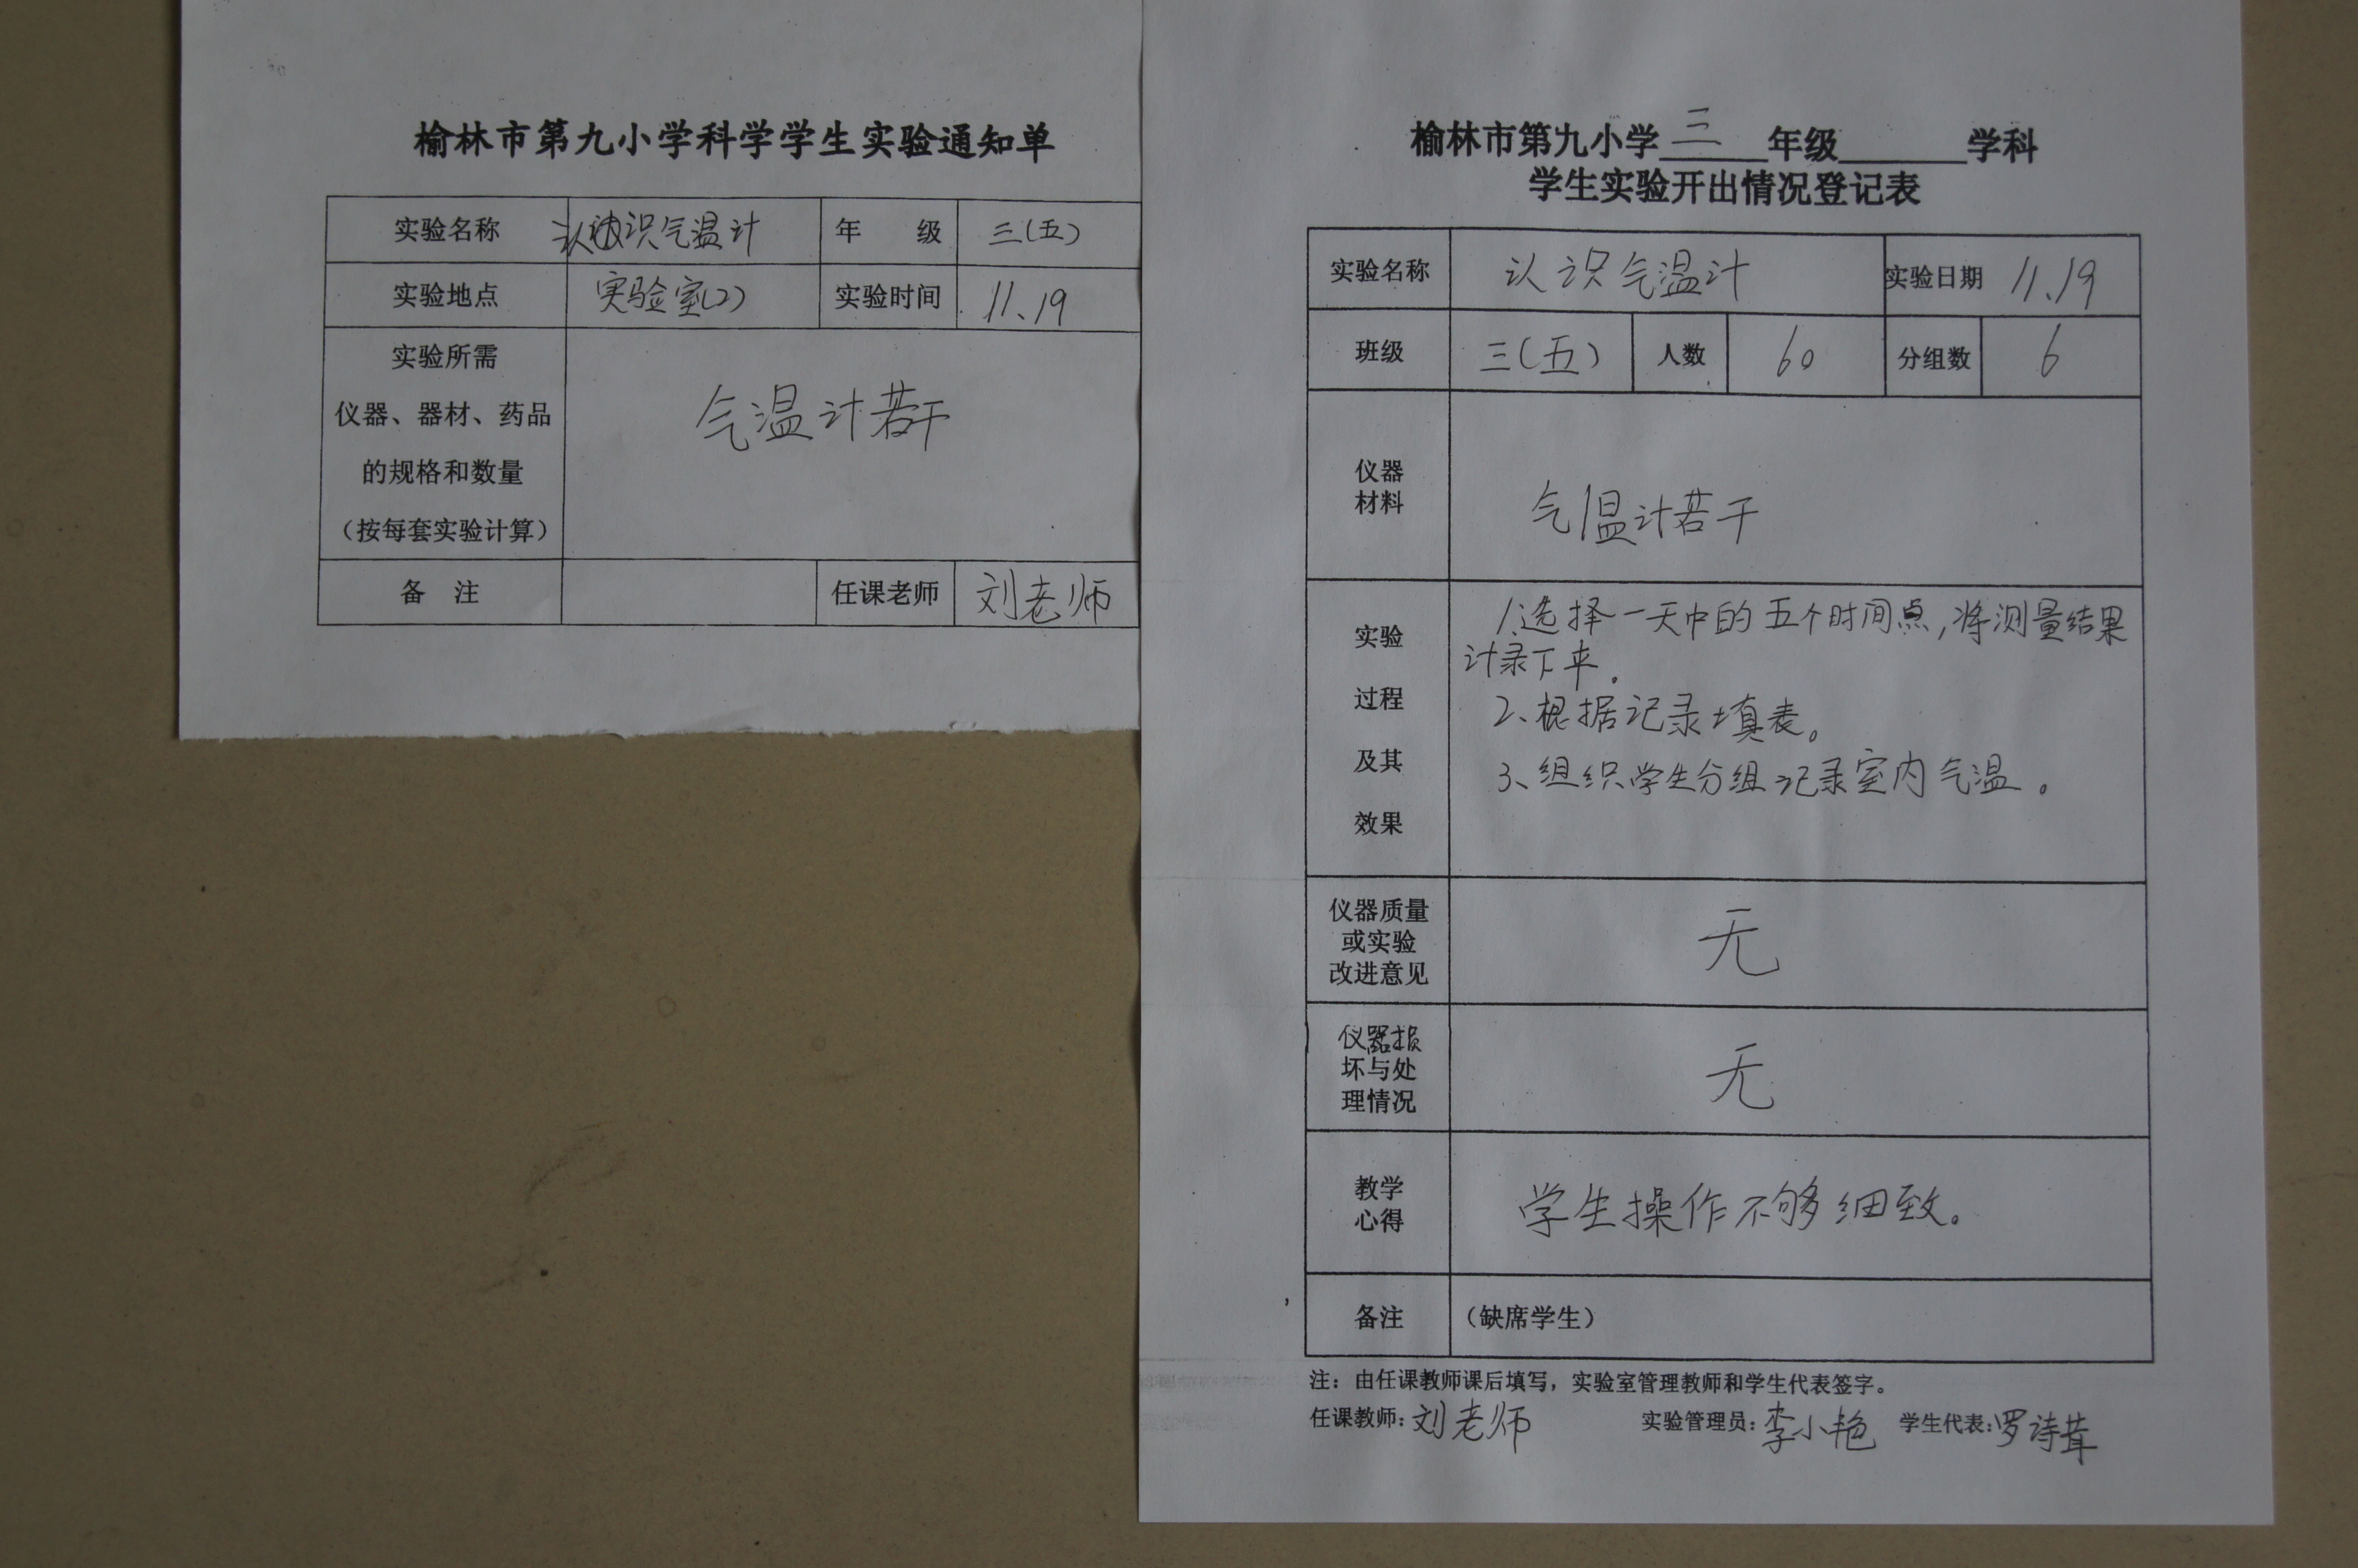 榆林市第九小学科学学生实验通知单
实验名称 认识气温计 年 级 三(五)
实验地点 实验室(2) 实验时间 11.19
实验所需
仪器、器材、药品
的规格和数量
(按每套实验计算)
气温计若干
备 注 任课老师 刘老师
榆林市第九小学三年级 学科
学生实验开出情况登记表
实验名称 认识气温计 实验日期 11.19
班级 三(五) 人数 60 分组数 6
仪器
材料
气温计若干
实验
过程
及其
效果
1.选择一天中的五个时间点,将测量结果
计录下来。
2、根据记录填表。
3、组织学生分组记录室内气温。
仪器质量
或实验
改进意见
无
仪器损
坏与处
理情况
无
教学
心得
学生操作不够细致。
备注 (缺席学生)
注:由任课教师课后填写,实验室管理教师和学生代表签字。
任课教师:刘老师 实验管理员:李小艳 学生代表:罗诗茸